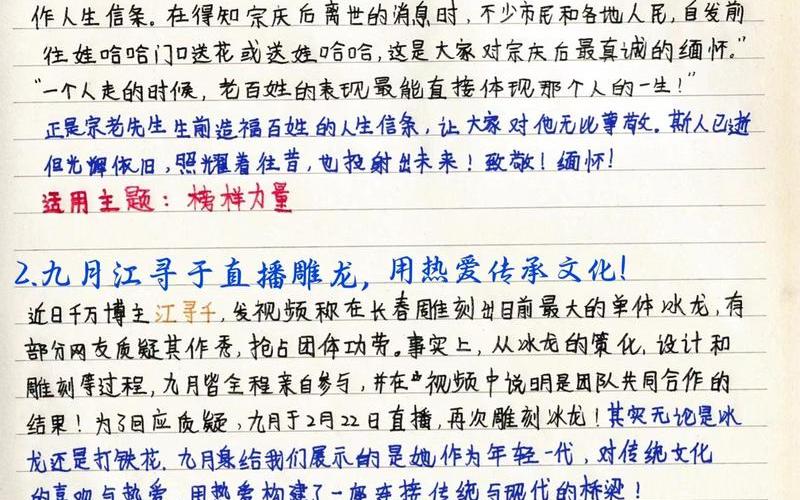 作人生信条。在得知宗庆后离世的消息时，不少市民和各地人民，自发前
往娃哈哈门口送花或送娃哈哈，这是大家对宗庆后最真诚的缅怀。”
“一个人走的时候，老百姓的表现最能直接体现那个人的一生！”
正是宗老先生生前造福百姓的人生信条，让大家对他无比尊敬。斯人已逝
但光辉依旧，照耀着往昔，也投射出未来！致敬！缅怀！
适用主题：榜样力量
2.九月江寻千直播雕龙，用热爱传承文化！
近日千万博主江寻千，发视频称在长春雕刻出目前最大的单体冰龙，有
部分网友质疑其作秀，抢占团体功劳。事实上，从冰龙的策化、设计和
雕刻等过程，九月皆全程亲自参与，并在视频中说明是团队共同合作的
结果！为了回应质疑，九月于2月22日直播，再次雕刻冰龙！其实无论是冰
龙还是打铁花，九月给我们展示的是她作为年轻一代，对传统文化
的喜欢与热爱，用热爱构建了一座连接传统与现代的桥梁！